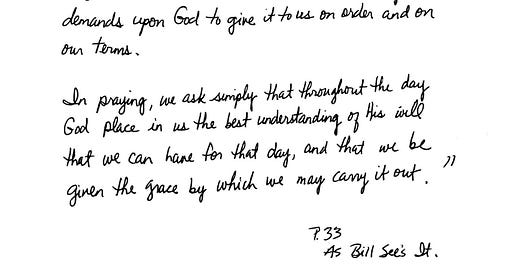 demands upon God to give it to us on order and on
our terms.
In praying, we ask simply that throughout the day
God place in us the best understanding of His will
that we can have for that day, and that we be
given the grace by which we may carry it out."
P. 33
As Bill See's It.